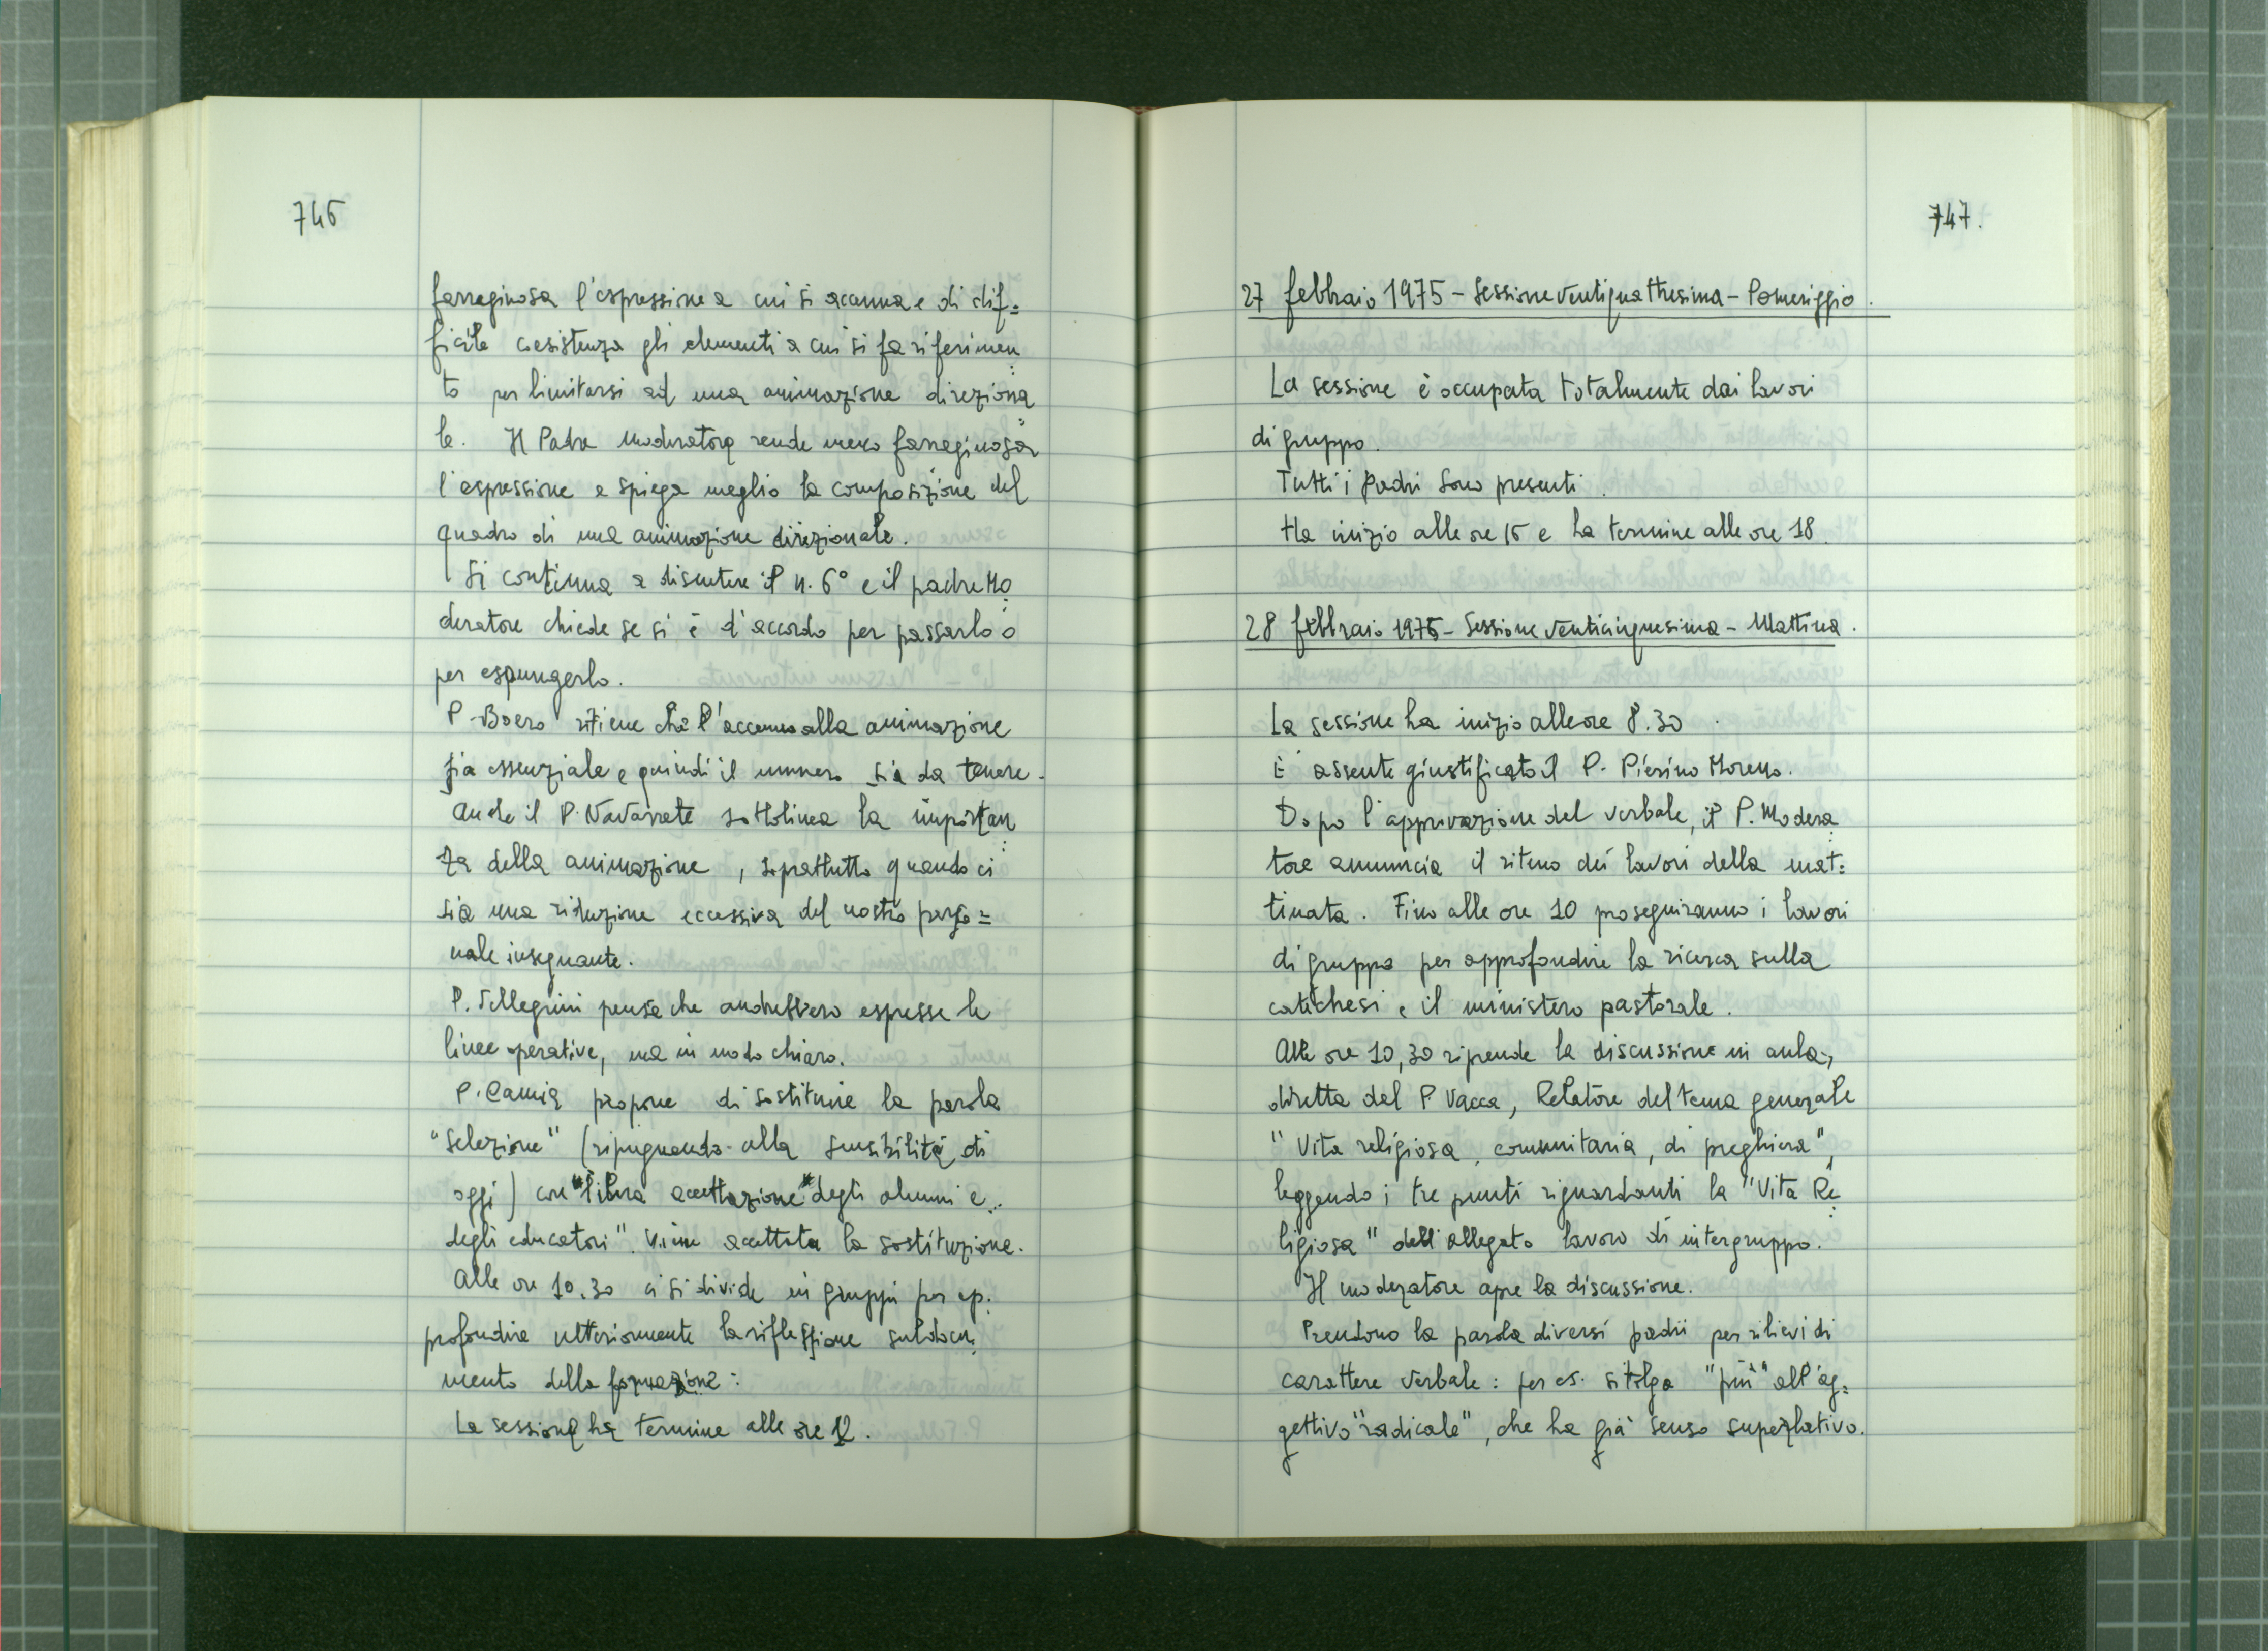 746
farraginosa l'espressione a cui si accenna e di dif=
ficile coesistenza gli elementi a cui si fa riferimen
to per limitarsi ad una animazione direziona
le. Il Padre Moderatore rende meno farraginosa
l'espressione e spiega meglio la composizione del
quadro di una animazione direzionale.
Si continua a discutere il n. 6° e il padre Mo
deratore chiede se si è d'accordo per passarlo o
per espungerlo.
P. Boero ritiene che l'accenno alla animazione
sia essenziale e quindi il numero sia da tenere.
Anche il P. Navarrete sottolinea la importan
za della animazione, soprattutto quando ci
sia una riduzione eccessiva del nostro perso=
nale insegnante.
P. Pellegrini pensa che andrebbero espresse le
linee operative, ma in modo chiaro.
P. Camia propone di sostituire la parola
"selezione" (ripugnando alla sensibilità di
oggi) con "libera accettazione" degli alunni e
degli educatori". Viene accettata la sostituzione.
Alle ore 10,30 ci si divide in gruppi per ap.
profondire ulteriormente la riflessione sul docu
mento della formazione:
La sessione ha termine alle ore 12.
747.
27 febbraio 1975 - Sessione ventiquattresima - Pomeriggio.
La sessione è occupata totalmente dai lavori
di gruppo.
Tutti i Padri sono presenti.
Ha inizio alle ore 15 e ha termine alle ore 18.
28 febbraio 1975 - Sessione venticinquesima - Mattina.
La sessione ha inizio alle ore 8.30.
È assente giustificato il P. Pierino Moreno.
Dopo l'approvazione del verbale, il P. Modera
tore annuncia il ritmo dei lavori della mat=
tinata. Fino alle ore 10 proseguiranno i lavori
di gruppo per approfondire la ricerca sulla
catechesi e il ministero pastorale.
Alle ore 10,30 riprende la discussione in aula,
diretta dal P. Vacca, Relatore del tema generale
"Vita religiosa, comunitaria, di preghiera",
leggendo i tre punti riguardanti la "Vita Re
ligiosa" dell'allegato lavoro di intergruppo.
Il moderatore apre la discussione.
Prendono la parola diversi padri per rilievi di
carattere verbale: per es. si tolga "più" all'ag=
gettivo "radicale", che ha già senso superlativo.